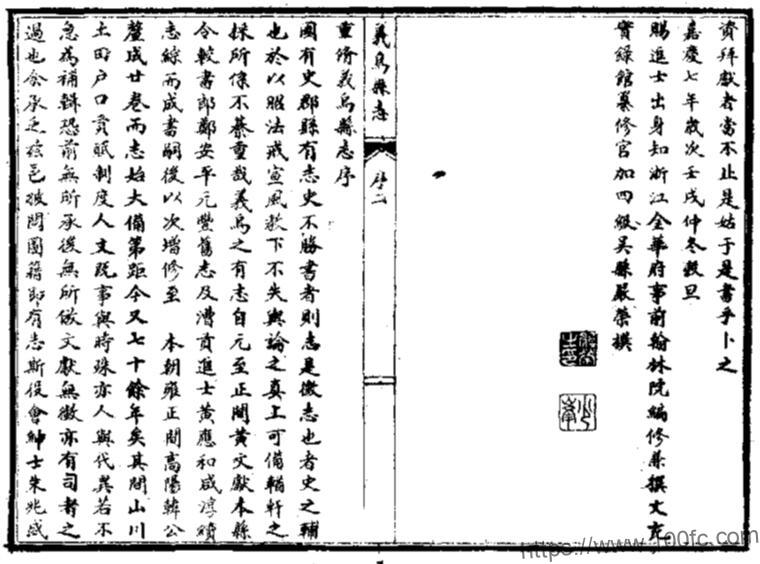 資拜獻者當不止是姑于是書乎卜之
嘉慶七年歲次壬戌仲冬穀旦
賜進士出身知浙江金華府事前翰林院編修兼撰文充
實錄館纂修官加四級吳縣嚴榮撰
義烏縣志
序二
重脩義烏縣志序
國有史郡縣有志史不勝書者則志是徵志也者史之輔
也於以昭法戒宣風教下不失輿論之真上可備輶軒之
採所係不綦重哉義烏之有志自元至正間黃文獻本縣
令較書郎鄭安平元豐舊志及漕貢進士黃應和咸淳續
志綜而成書嗣後以次增修至 本朝雍正間高陽韓公
釐成廿卷而志始大備第距今又七十餘年矣其間山川
土田户口貢賦制度人文既事與時殊亦人與代異若不
急為補輯恐前無所承後無所倣文獻無徵亦有司者之
過也余承乏茲邑披閱圖籍即有志斯役會紳士朱兆
https://www.100fc.com